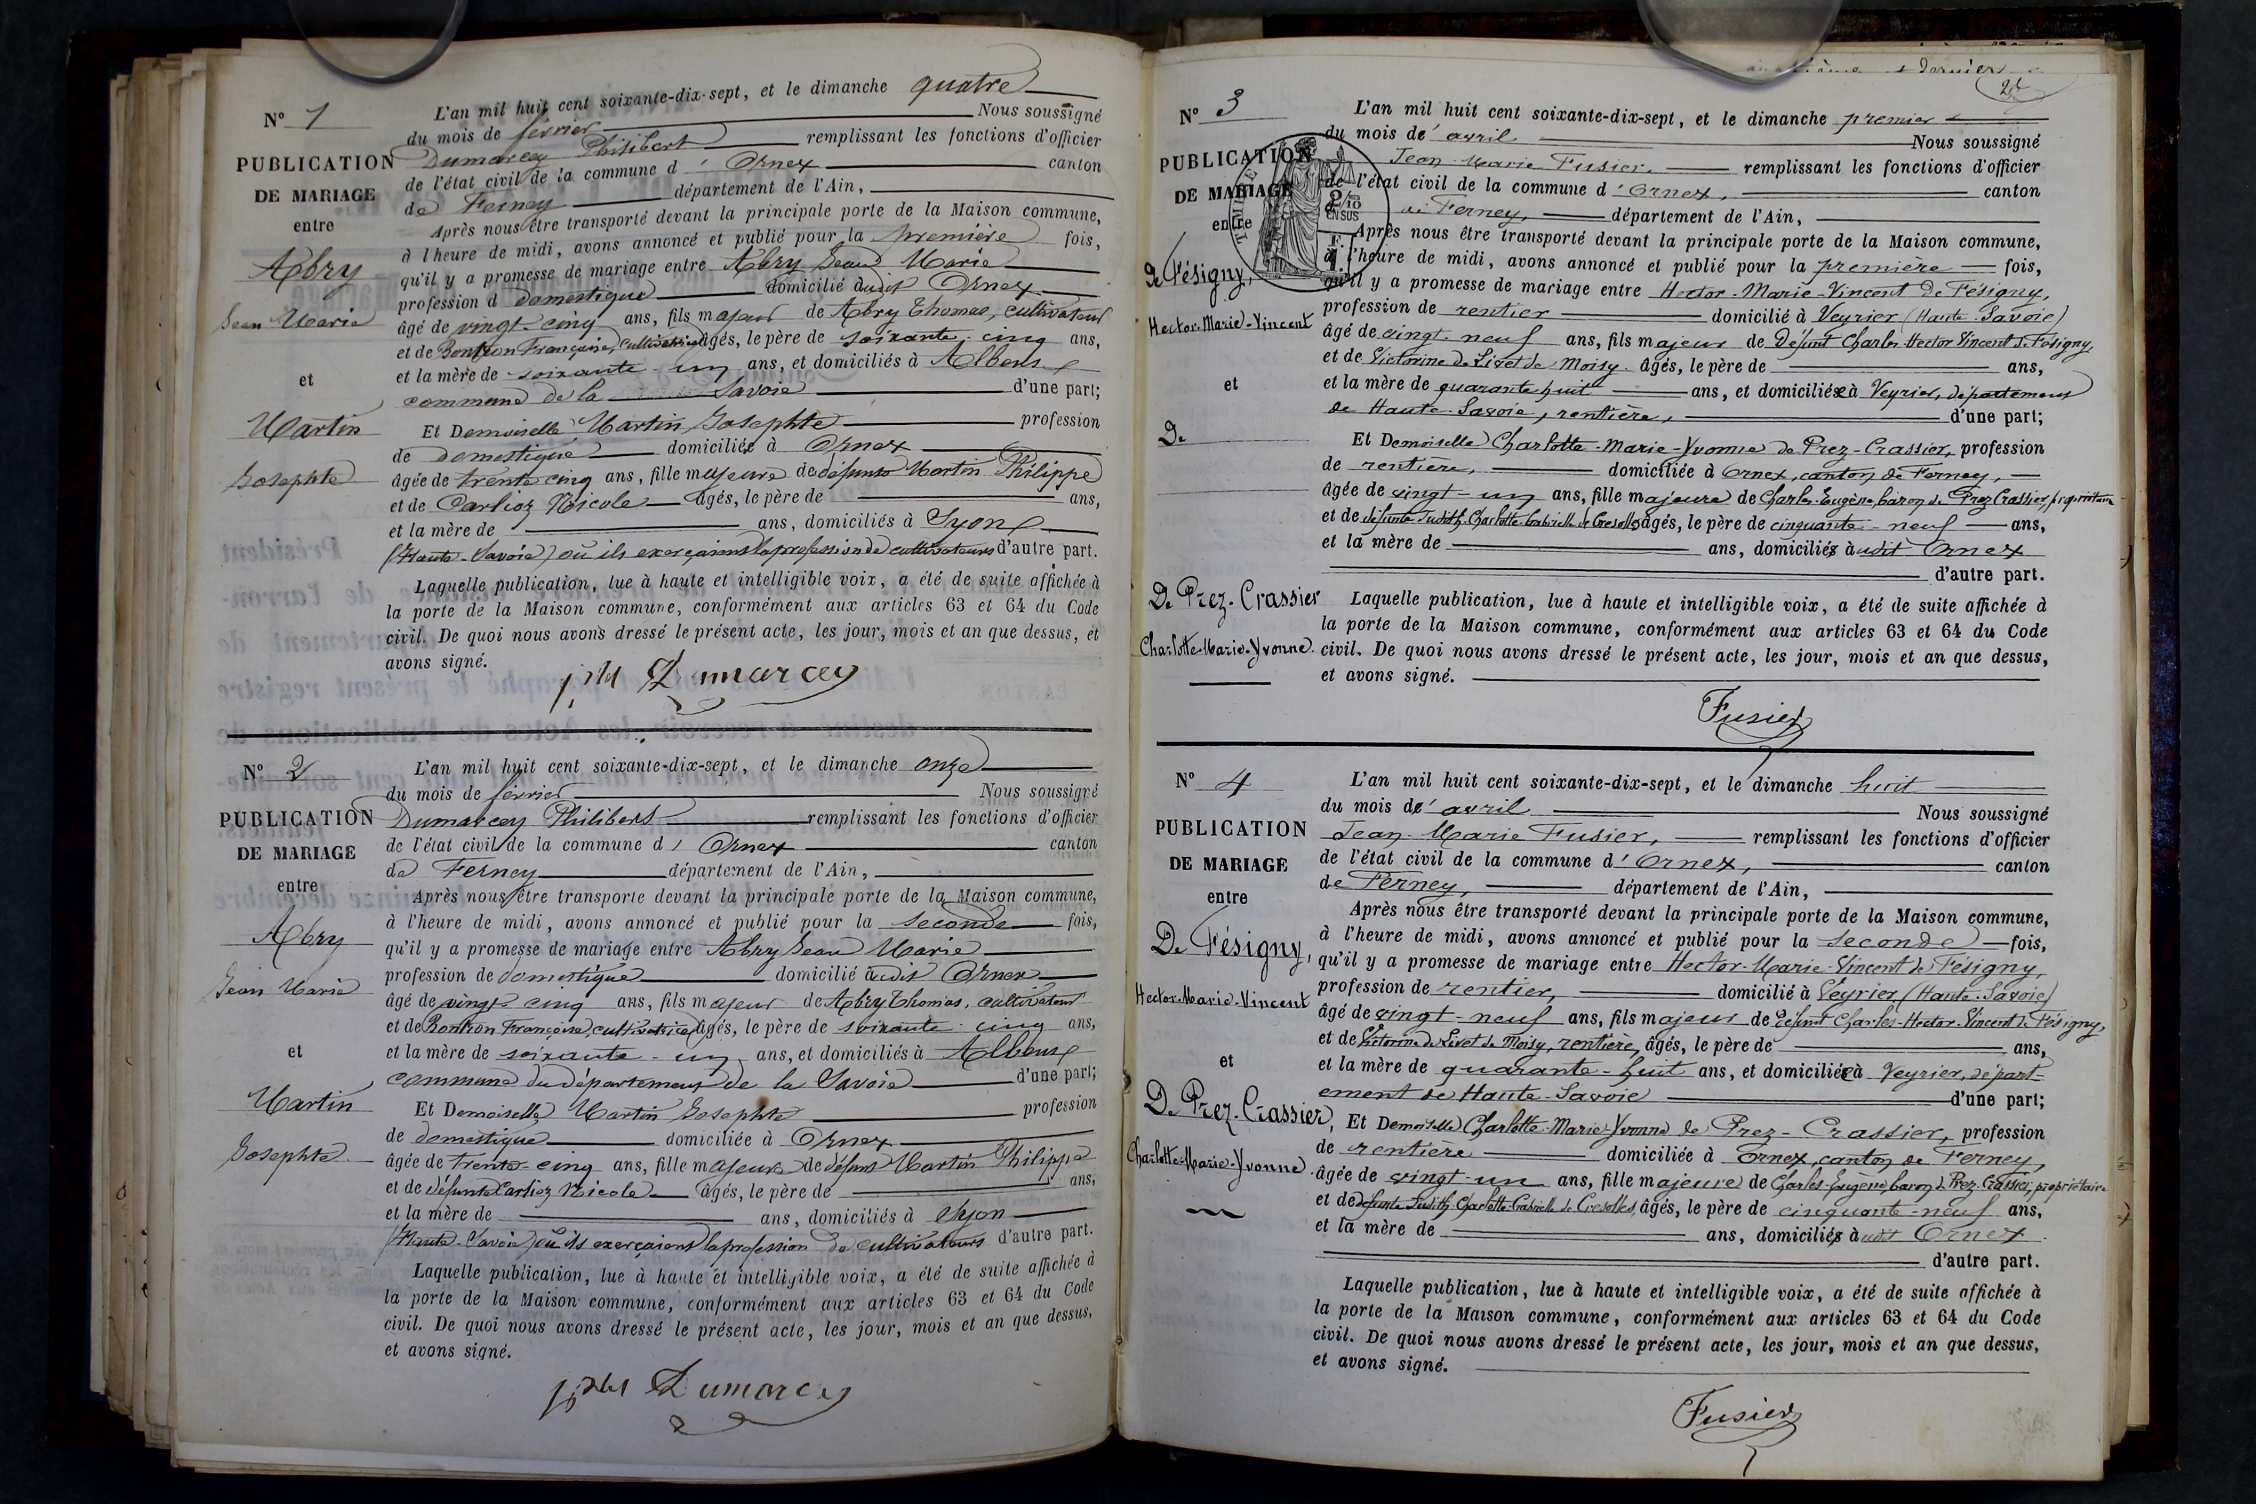 N° 1
PUBLICATION
DE MARIAGE
entre
Abry
Jean Marie
et
Martin
Josephte
L'an mil huit cent soixante-dix-sept, et le dimanche quatre
du mois de février Nous soussigné
Dumarcey Philibert remplissant les fonctions d'officier
de l'état civil de la commune d' Ornex canton
de Ferney département de l'Ain,
Après nous être transporté devant la principale porte de la Maison commune,
à l'heure de midi, avons annoncé et publié pour la première fois,
qu'il y a promesse de mariage entre Abry Jean Marie
profession d domestique domicilié audit Ornex
âgé de vingt-cinq ans, fils majeur de Abry Thomas, cultivateur
et de Bontron Françoise, cultivatrice âgés, le père de soixante-cinq ans,
et la mère de soixante-un ans, et domiciliés à Albens
commune de la Savoie d'une part;
Et Demoiselle Martin Josephte profession
de domestique domiciliée à Ornex
âgée de trente cinq ans, fille majeure de défunts Martin Philippe
et de Carlioz Nicole âgés, le père de ans,
et la mère de ans, domiciliés à Lyon
(Haute-Savoie) où ils exerçaient la profession de cultivateurs d'autre part.
Laquelle publication, lue à haute et intelligible voix, a été de suite affichée à
la porte de la Maison commune, conformément aux articles 63 et 64 du Code
civil. De quoi nous avons dressé le présent acte, les jour, mois et an que dessus, et
avons signé.
Dumarcey
N° 2
PUBLICATION
DE MARIAGE
entre
Abry
Jean Marie
et
Martin
Josephte
L'an mil huit cent soixante-dix-sept, et le dimanche onze
du mois de février Nous soussigné
Dumarcey Philibert remplissant les fonctions d'officier
de l'état civil de la commune d' Ornex canton
de Ferney département de l'Ain,
Après nous être transporté devant la principale porte de la Maison commune,
à l'heure de midi, avons annoncé et publié pour la seconde fois,
qu'il y a promesse de mariage entre Abry Jean Marie
profession de domestique domicilié audit Ornex
âgé de vingt-cinq ans, fils majeur de Abry Thomas, cultivateur
et de Bontron Françoise, cultivatrice âgés, le père de soixante-cinq ans,
et la mère de soixante-un ans, et domiciliés à Albens
commune du département de la Savoie d'une part;
Et Demoiselle Martin Josephte profession
de domestique domiciliée à Ornex
âgée de trente-cinq ans, fille majeure de défunt Martin Philippe
et de défunte Carlioz Nicole âgés, le père de ans,
et la mère de ans, domiciliés à
(Haute-Savoie) où ils exerçaient la profession de cultivateurs d'autre part.
Laquelle publication, lue à haute et intelligible voix, a été de suite affichée à
la porte de la Maison commune, conformément aux articles 63 et 64 du Code
civil. De quoi nous avons dressé le présent acte, les jour, mois et an que dessus,
et avons signé.
Dumarcey
2
N° 3
PUBLICATION
DE MARIAGE
entre
De Fésigny,
Hector-Marie-Vincent
et
De
De Prez-Crassier
Charlotte-Marie-Yvonne.
L'an mil huit cent soixante-dix-sept, et le dimanche premier
du mois de' avril Nous soussigné
Jean-Marie Fusier, remplissant les fonctions d'officier
de l'état civil de la commune d' Ornex, canton
de Ferney, département de l'Ain,
Après nous être transporté devant la principale porte de la Maison commune,
à l'heure de midi, avons annoncé et publié pour la première fois,
qu'il y a promesse de mariage entre Hector-Marie-Vincent De Fésigny,
profession de rentier domicilié à Veyrier (Haute-Savoie)
âgé de vingt-neuf ans, fils majeur de défunt Charles-Hector Vincent de Fésigny,
et de Victorine de Livet de Moisy âgés, le père de ans,
et la mère de quarante huit ans, et domiciliés à Veyrier, département
de Haute-Savoie, rentière, d'une part;
Et Demoiselle Charlotte-Marie-Yvonne de Prez-Crassier, profession
de rentière, domiciliée à Ornex, canton de Ferney,
âgée de vingt-un ans, fille majeure de Charles-Eugène, baron de Prez-Crassier, propriétaire
et de défunte Judith-Charlotte-Gabrielle de Cresolles âgés, le père de cinquante-neuf ans,
et la mère de ans, domiciliés audit Ornex
d'autre part.
Laquelle publication, lue à haute et intelligible voix, a été de suite affichée à
la porte de la Maison commune, conformément aux articles 63 et 64 du Code
civil. De quoi nous avons dressé le présent acte, les jour, mois et an que dessus,
et avons signé.
Fusier
N° 4
PUBLICATION
DE MARIAGE
entre
De Fésigny,
Hector-Marie-Vincent
et
De Prez-Crassier,
Charlotte-Marie-Yvonne.
L'an mil huit cent soixante-dix-sept, et le dimanche huit
du mois de' avril Nous soussigné
Jean-Marie Fusier, remplissant les fonctions d'officier
de l'état civil de la commune d' Ornex, canton
de Ferney, département de l'Ain,
Après nous être transporté devant la principale porte de la Maison commune,
à l'heure de midi, avons annoncé et publié pour la seconde fois,
qu'il y a promesse de mariage entre Hector-Marie-Vincent de Fésigny,
profession de rentier, domicilié à Veyrier (Haute-Savoie)
âgé de vingt-neuf ans, fils majeur de défunt Charles-Hector-Vincent de Fésigny,
et de Victorine de Livet de Moisy, rentière, âgés, le père de ans,
et la mère de quarante-huit ans, et domiciliée à Veyrier, départ-
ement de Haute-Savoie d'une part;
Et Demoiselle Charlotte-Marie-Yvonne de Prez-Crassier, profession
de rentière domiciliée à Ornex, canton de Ferney,
âgée de vingt-un ans, fille majeure de Charles-Eugène, baron de Prez-Crassier, propriétaire
et de défunte Judith-Charlotte-Gabrielle de Cresolles, âgés, le père de cinquante-neuf ans,
et la mère de ans, domiciliés audit Ornex
d'autre part.
Laquelle publication, lue à haute et intelligible voix, a été de suite affichée à
la porte de la Maison commune, conformément aux articles 63 et 64 du Code
civil. De quoi nous avons dressé le présent acte, les jour, mois et an que dessus,
et avons signé.
Fusier